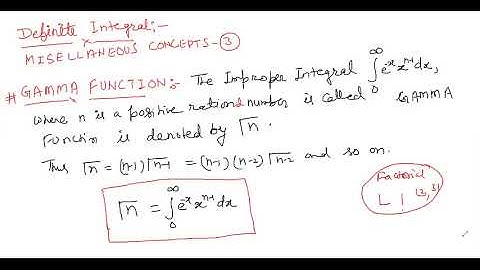 Definite Integral:-
MISELLANEOUS CONCEPTS-③
# GAMMA FUNCTION:- The Improper Integral ∫₀^∞ e^-x x^n-1 dx,
where n is a positive rational number is called GAMMA
Function is denoted by Γn.
Thus Γn = (n-1)Γn-1 = (n-1)(n-2)Γn-2 and so on.
Factorial
L ! (2,3!)
Γn = ∫₀^∞ e^-x x^n-1 dx